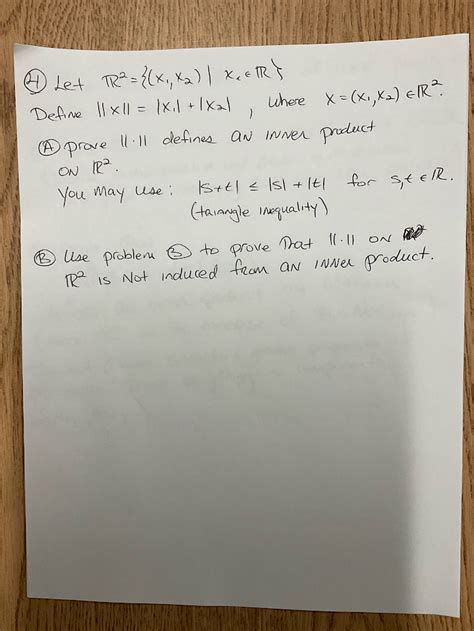 ④ Let ℝ² = {(x₁, x₂) | xᵢ ∈ ℝ}
Define ||x|| = |x₁| + |x₂| , where x = (x₁, x₂) ∈ ℝ².
Ⓐ prove ||·|| defines an inner product
on ℝ².
You may use: |s+t| ≤ |s| + |t| for s,t ∈ ℝ.
(taiangle inequality)
Ⓑ Use problem ③ to prove that ||·|| on
ℝ² is not induced from an inner product.